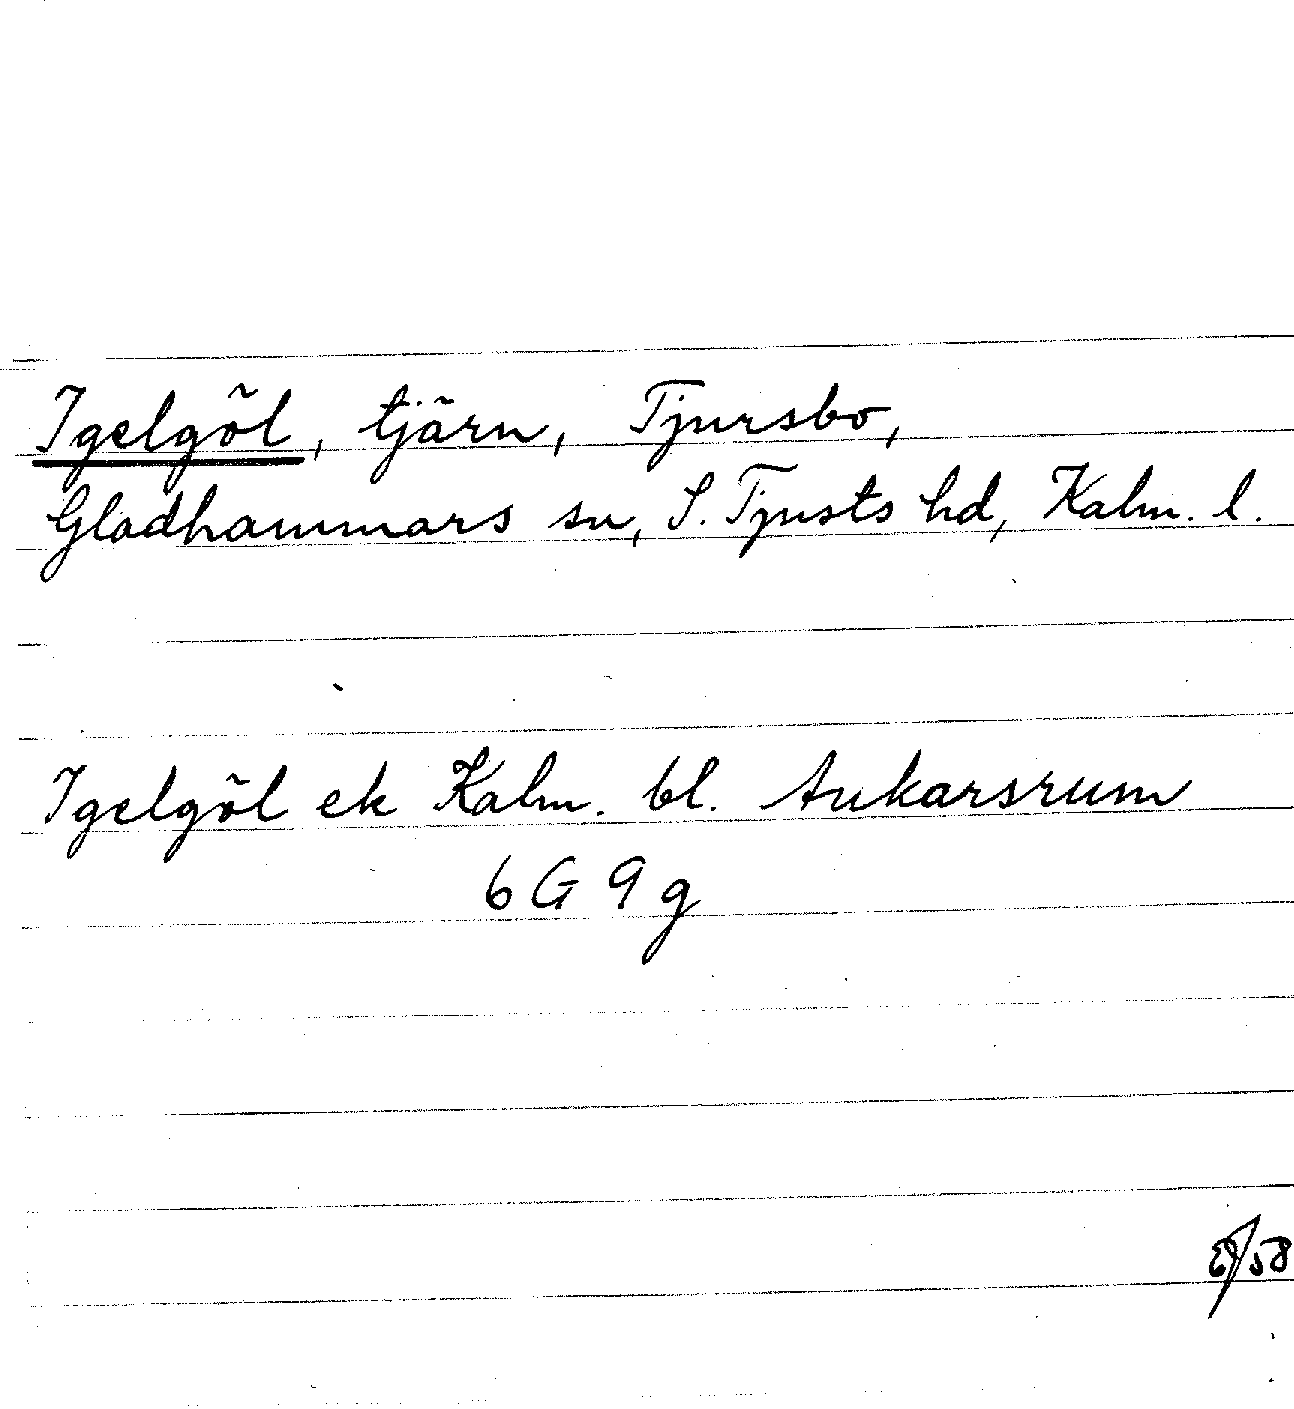 Igelgöl, tjärn, Tjursbo,
Gladhammars sn, S. Tjusts hd, Kalm. l.
Igelgöl ek Kalm. bl. Ankarsrum
6 G 9 g